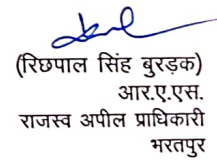 (रिछपाल सिंह बुरड़क)
आर.ए.एस.
राजस्व अपील प्राधिकारी
भरतपुर